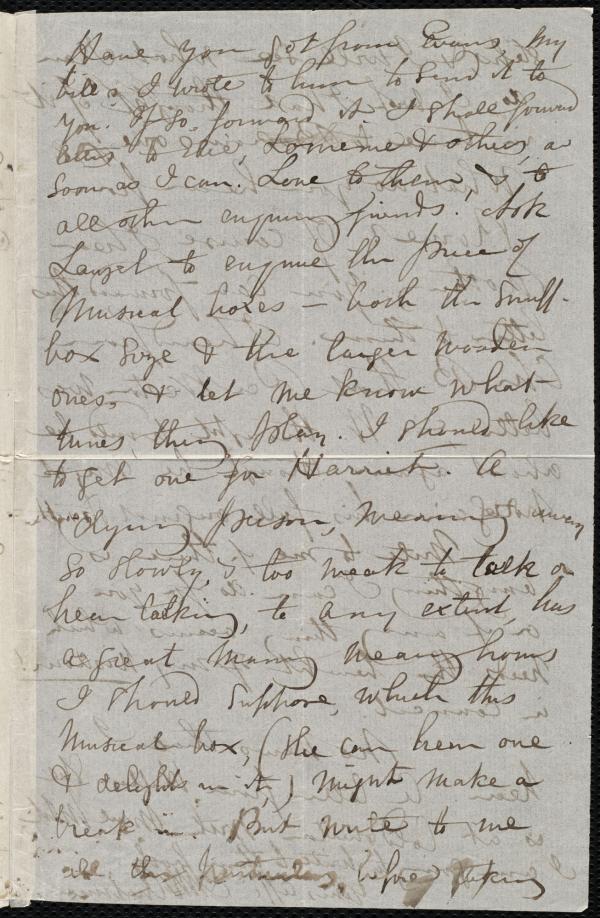 Have you got from Evans, my
bill? I wrote to him to send it to
you. If so, forward it. I shall forward
letters to Eliz, & others, as
soon as I can. Love to them, & to
all other enquiring friends. Ask
to enquire the price of
Musical boxes – both the snuff-
box size & the larger wooden
ones, & let me know what
tunes they play. I should like
to get one for Harriet. A
dying person, wearing away
so slowly, & too weak to talk or
hear talking, to any extent, has
a great many weary hours
I should suppose, which this
Musical box, (she can hear one
& delights in it,) might make a
break in. But write to me
all the particulars, before taking